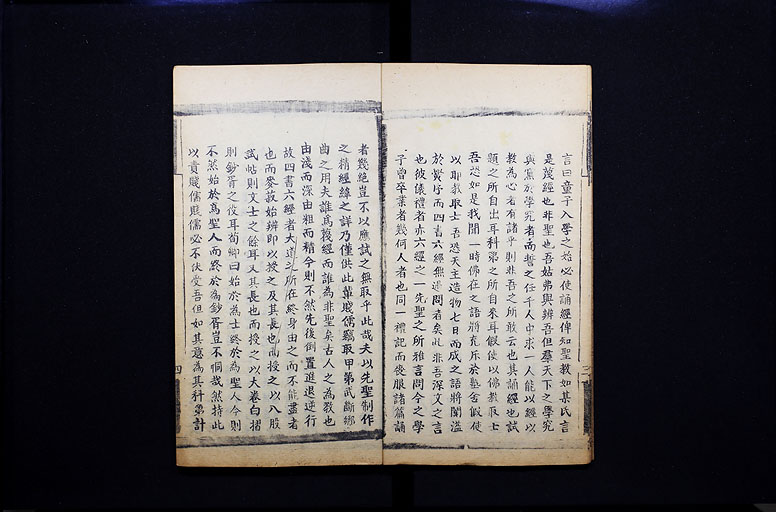 言曰童子入學之始必使誦經俾知聖教如其氏言
是蔑經也非聖也吾姑弗與辨吾但羣天下之學究
與黨於學究者而誓之任千人中求一人能以經以
教為心者有諸乎則非吾之所敢云也其誦經也試
題之所自出耳科第之所自來耳假使以佛教取士
吾恐如是我聞一時佛在之語將充斥於塾舍假使
以耶教取士吾恐天主造物七日而成之語將闐溢
於黌序而四書六經無過問者矣此非吾深文之言
也彼儀禮者亦六經之一先聖之所雅言問今之學
子曾卒業者幾何人者也同一禮記而喪服諸篇誦
者幾絕豈不以應試之無取乎此哉夫以先聖制作
之精經緯之詳乃僅供此輩賤儒竊取甲第武斷鄉
曲之用夫誰為蔑經而誰為非聖矣古人之為教也
由淺而深由粗而精今則不然先後倒置進退逆行
故四書六經者大道之所在終身由之而不能盡者
也而麥菽始辨即以授之及其長也而授之以八股
試帖則文士之餘耳又其長也而授之以大卷白摺
則鈔胥之伎耳荀卿曰始於為士終於為聖人今則
不然始於為聖人而終於為鈔胥豈不恫哉然持此
以責賤儒賤儒必不伏受吾但如其意為其科第計
四